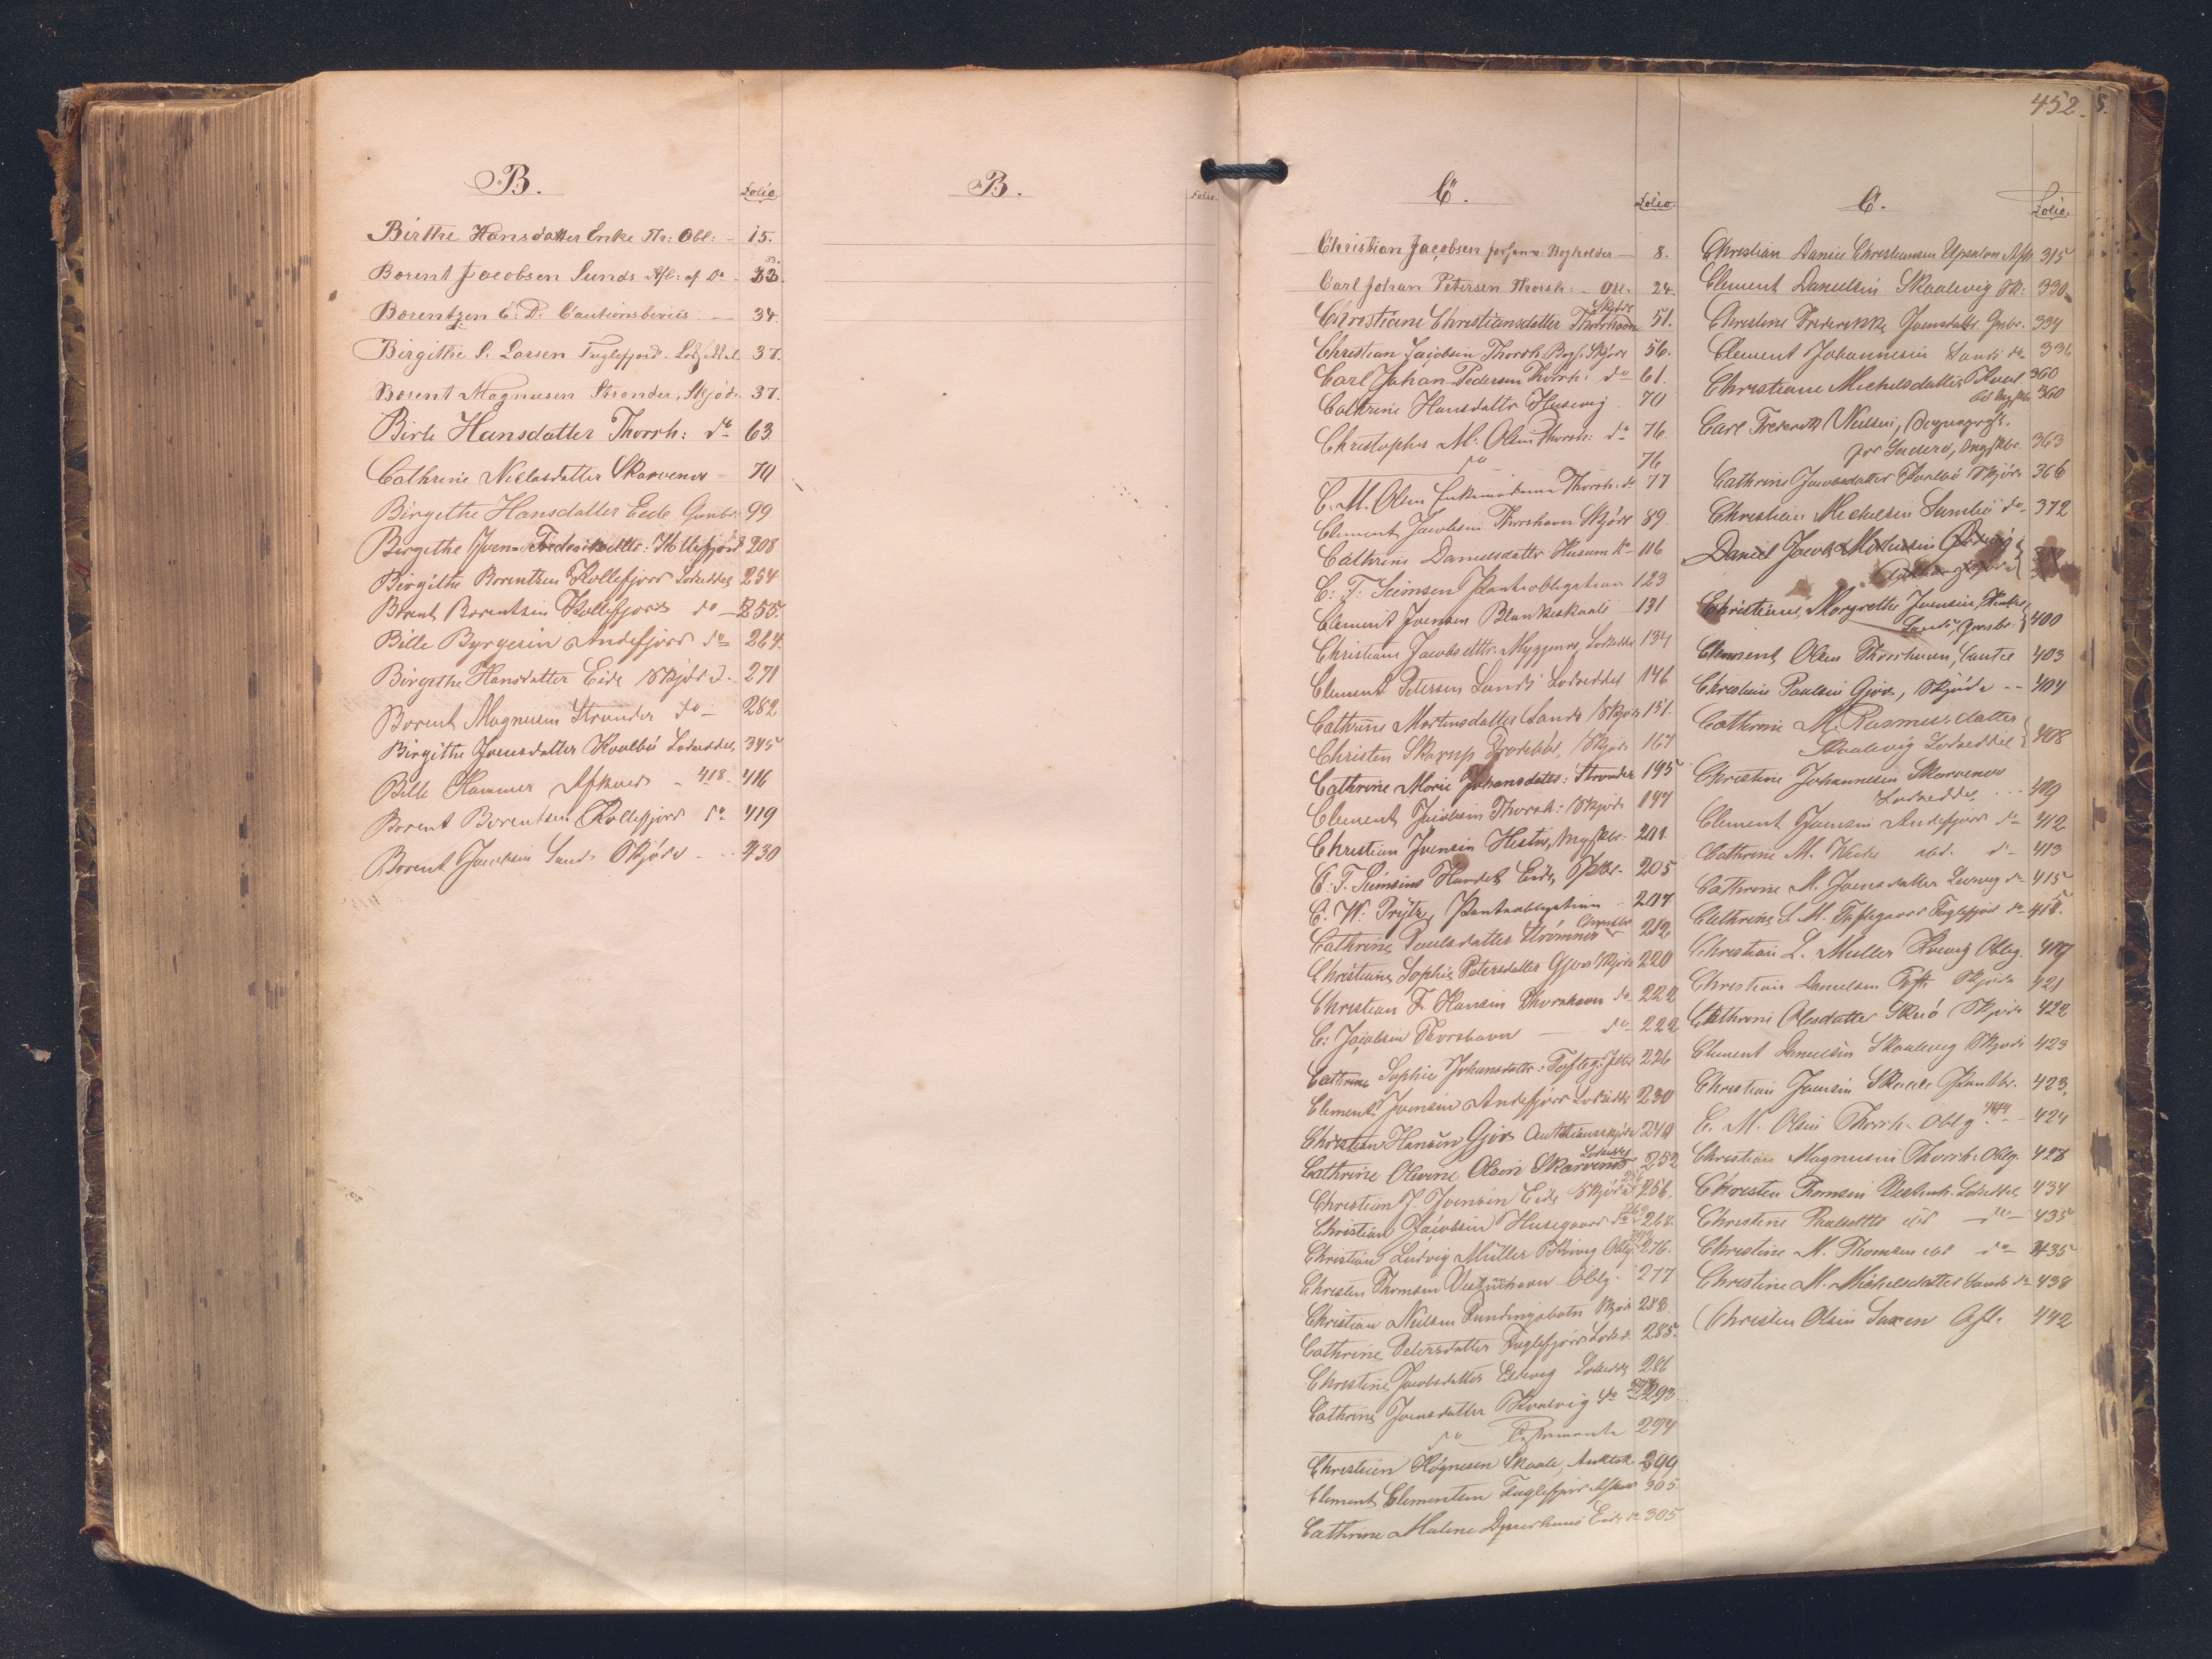 B.
Folio
Birthe Hansdatter Enke Th: Obl: - 15.
33.
Borent Jacobsen Sunds Afl: af Do - 33.
Borentzen E. D. Cautionsbeviis - 34.
Birgithe S. Larsen Fuglefjord. 37.
Borent Magnusen Strender, Skjöde 37.
Birte Hansdatter Thorsh: do 63.
Cathrine Niclasdatter Skaarvenes - 70
Birgithe Hansdatter Eide Gavebr: 99
Birgithe Joen- Frederiksdttr: Kollefjord 208
Birgithe Borentzen Kollefjord Lodseddel 254
Borent Borentsen Kollefjord do - 255.
Bille Byrgesen Andefjord do - 264.
Birgithe Hansdatter Eide Skjöde - 271
Borent Magnusen Strender do - 282
Birgithe Joensdatter Kvalbö Lodseddel 345
Bille Hammer Afkald - 418. 416
Borent Borentsen Kollefjord do 419
Borent Jacobsen Sund. Skjöde - 430
B.
Folio.
C.
Folio.
Christian Jacobsen Bogholder - 8.
Carl Johan Petersen Thorsh: - Obl. 24.
Skjöde
Christiane Christiansdatter Thorshavn 51.
Christian Jacobsen Thorsh. Bogh. Skjöde 56.
Carl Johan Pedersen Thorsh: do - 61.
Cathrine Hansdattr Husevig 70
Christopher M. Olsen Thorsh: do 76.
do 76
C. M. Olsen Thorsh: do 77
Clement Jacobsen Thorshavn Skjöde 89.
Cathrine Danielsdattr Husum do - 116
C. F. Siemsen Panteobligation 123
Clement Joensen Blankeskaale - 131
Christiane Jacobsdttr: Myggenæs, Lodseddel 134
Clement Petersen Sand Lodseddel 146
Cathrine Martinsdatter Sands Skjöde 151.
Christen Skarup Skjöde 167
Cathrine Marie Johansdatt: Strender 195
Clement Jacobsen Thorsh: Skjöde 197
Christian Joensen Hestø, 201.
C. F. Siemsens Handel Eide, 205
C. W. Prytz, Panteobligation - 207
Cathrine Poulsdatter Strömnæs 212
Christiane Sophie Petersdatter Gjov Skjöde 220
Christian F. Hansen Thorshavn do - 222
C. Jacobsen Thorshavn - do - 222
Cathrine Sophie Johansdattr: 226
Clement Joensen Andefjord Lodseddel 230
Christian Hansen Gjov Auctionsskjöde 240
Lodseddel
Cathrine Olevine Olsen Skarvenæs 252
Christian J. Joensen Eide Skjöde 256.
Christian Jacobsen Husegaard do 268.
Christian Ludvig Müller Kvivig Oblig. 276.
Christen Thomsen Vestmanhavn Oblig. 277
Christian Nielsen Funningsbotn Skjöde 283.
Cathrine Petersdatter Fuglefjord Lodsd. 285.
Christine Jacobsdatter Eldevig Lodseddel 286
Cathrine Joensdatter Kvalvig do 293
do Testamente 294
Christian Högnesen Skaale, Auktsk. 299
Clement Clementsen Fuglefjord Afkald 305.
Cathrine Malene Djurhuus Eide do 305
452.
C.
Folio.
Christian Daniel Christiansen 315
Clement Danielsen Skaalevig Sk: 330.
Christine Frederikke Joensdattr. Gavbr. 334
Clement Johannesen Sand do 336
Christiane Michelsdatter 360
360
Carl Frederik Nielsen,
for Suderö, 363
Cathrine Jacobsdatter Kvalbö Skjöde 366
Christian Michelsen Sumbö do - 372
Daniel Jacob
Christiane Margrethe Joensen,
Sand, Gavebr. 400
Clement Olsen Thorshavn, 403
Christian Paulsen Gjov, Skjöde -- 404
Cathrine M. Rasmusdatter
Skaalevig Lodseddel 408
Christine Johannesen Skarvenæs
Lodseddel - - - 409
Clement Joensen Andefjord do 412
Cathrine M. do - 413
Cathrine M. Joensdatter Leervig do 415
Cathrine S. M. Toftegaard Fuglefjord do 418.
Christian L. Müller Kvivig Oblig. 419
Christian Danielsen Toft. Skjöde 421
Cathrine Olesdatter Skuö Skjöde 422
Clement Danielsen Skaalevig Skjöde 423
Christian Joensen Skaale Pantbr. 423.
C. M. Olsen Thorsh. Oblig. - 424
Christian Magnusen Thorsh. Oblig. 428
Christen Thomsen Vestmh. Lodseddel 434
Christine Paulsdttr ibd - do - 435
Christine M. Thomsen ibd do - 435
Christine M. Michelsdatter Sands do 438
Christen Olsen Saxen Afl. 442